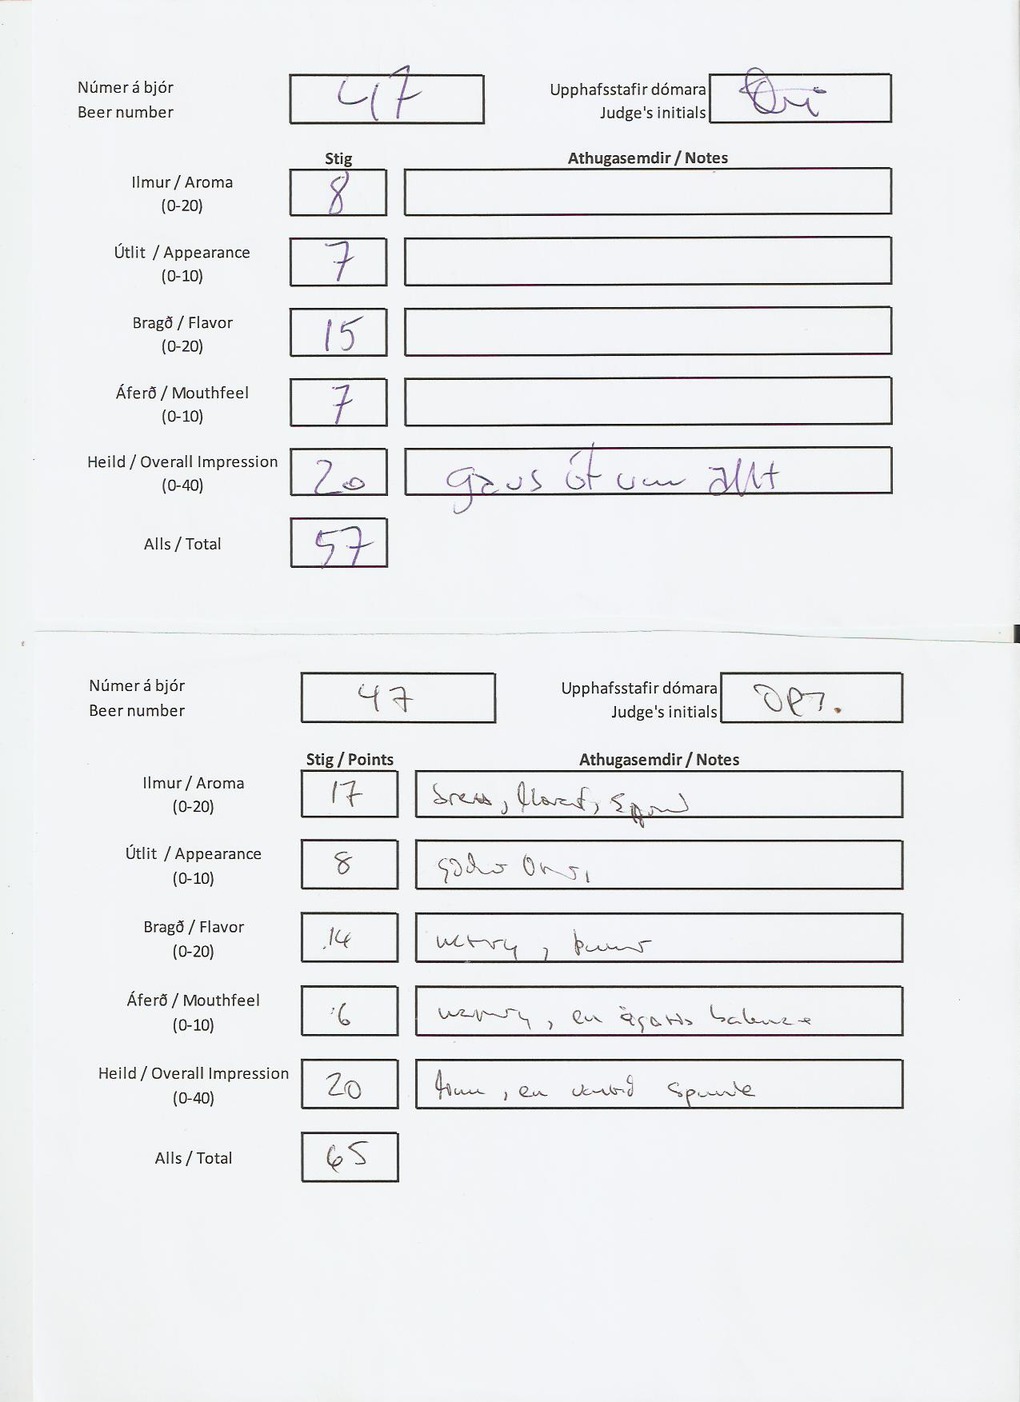 Númer á bjór 47 Upphafsstafir dómara
Beer number Judge's initials
Stig Athugasemdir / Notes
Ilmur / Aroma 8
(0-20)
Útlit / Appearance 7
(0-10)
Bragð / Flavor 15
(0-20)
Áferð / Mouthfeel 7
(0-10)
Heild / Overall Impression 20 gaus út um allt
(0-40)
Alls / Total 57
Númer á bjór 47 Upphafsstafir dómara
Beer number Judge's initials
Stig / Points Athugasemdir / Notes
Ilmur / Aroma 17
(0-20)
Útlit / Appearance 8
(0-10)
Bragð / Flavor 14
(0-20)
Áferð / Mouthfeel 6 en ágætis balance
(0-10)
Heild / Overall Impression 20 en
(0-40)
Alls / Total 65